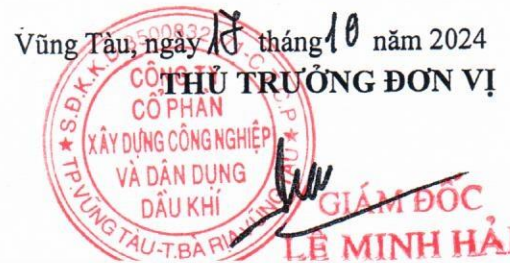 Vũng Tàu, ngày 17 tháng 10 năm 2024
THỦ TRƯỞNG ĐƠN VỊ
CÔNG TY
CỔ PHẦN
XÂY DỰNG CÔNG NGHIỆP
VÀ DÂN DỤNG
DẦU KHÍ
TP.VŨNG TÀU-T.BÀ RỊA VŨNG TÀU
GIÁM ĐỐC
LÊ MINH HẢI